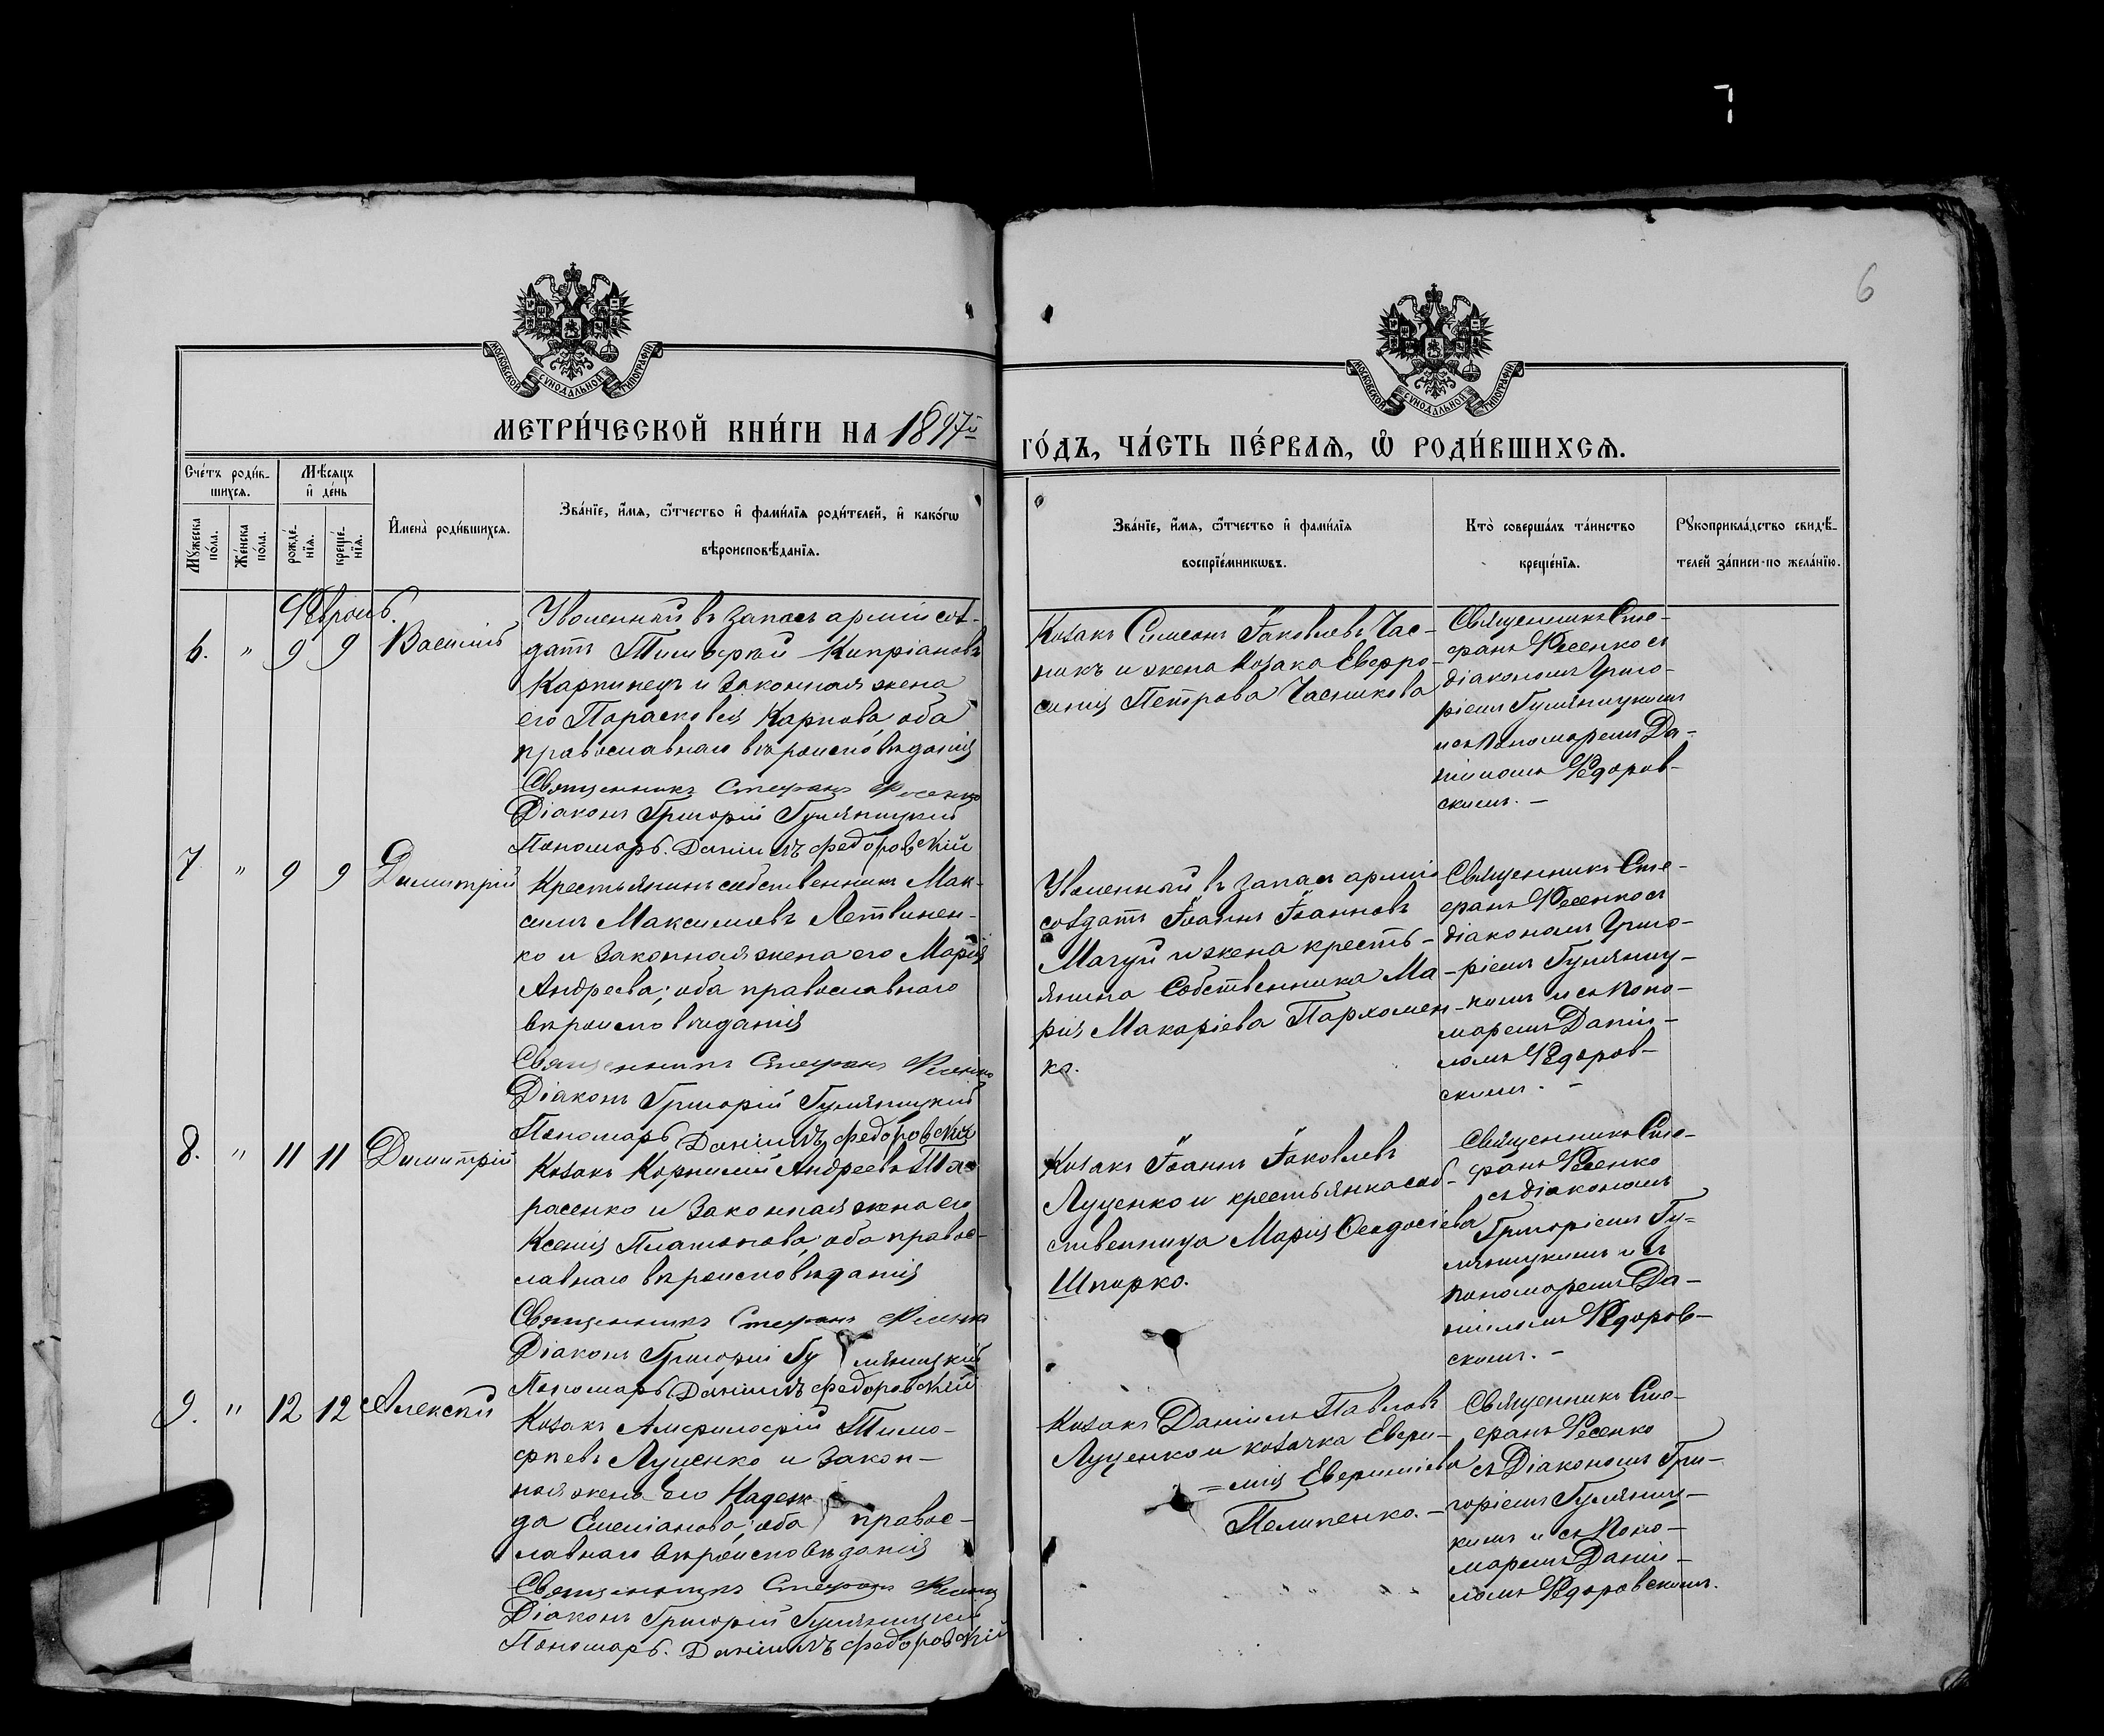 6
МОСКОВСКОЙ СѴНОДАЛЬНОЙ ТИПОГРАФІИ
МОСКОВСКОЙ СѴНОДАЛЬНОЙ ТИПОГРАФІИ
МЕТРИ́ЧЕСКОЙ КНИ́ГИ НА 1897й
ГО́ДЪ, ЧА́СТЬ ПЕ́РВАѦ, Ѡ҆ РОДИ́ВШИХСѦ.
Сче́тъ роди́в-
шихсѧ.
Мѣ́сѧцъ
и҆ де́нь
Мꙋ́жеска
по́ла.
Же́нска
по́ла.
рожде́-
нїѧ.
креще́-
нїѧ.
И҆мена̀ роди́вшихсѧ.
Зва́нїе, и҆́мѧ, ѻ҆́тчество и҆ фами́лїѧ роди́телей, и҆ како́гѡ
вѣроисповѣ́данїѧ.
Зва́нїе, и҆́мѧ, ѻ҆́тчество и҆ фами́лїѧ
воспрїе́мникѡвъ.
Кто̀ соверша́лъ та́инство
креще́нїѧ.
Рꙋкоприкла́дство свидѣ́-
телей за́писи по жела́нїю.
Февраль.
6. " 9 9 Василій
Уволенный въ запасъ арміи сол-
датъ Тимофей Кипріановъ
Карпинецъ и законная жена
его Парасковія Карпова оба
православнаго вѣроисповѣданія
Священникъ Стефанъ Фесенко
Діаконъ Григорій Гумяницкій
Пономарь. Даніилъ Федоровскій
Козакъ Симеонъ Іаковлевъ Час-
никъ и жена козака Евфро-
синія Петрова Часникова
Священникъ Сте-
фанъ Фесенко съ
діакономъ Григо-
ріемъ Гумяницкимъ
и съ пономаремъ Да-
ніиломъ Федоров-
скимъ. –
7 " 9 9 Димитрій
Крестьянинъ собственникъ Мак-
симъ Максимовъ Летвинен-
ко и законная жена его Марія
Андреева; оба православнаго
вѣроисповѣданія
Священникъ Стефанъ Фесенко
Діаконъ Григорій Гумяницкій
Пономарь Даніилъ Федоровскій
Уволенный въ запасъ арміи
солдатъ Іоаннъ Іоанновъ
Мачуй и жена кресть-
янина Собственника Ма-
рія Макаріева Пархомен-
ка.
Священникъ Сте-
фанъ Фесенко съ
діакономъ Григо-
ріемъ Гумяниц-
кимъ и съ поно-
маремъ Даніи-
ломъ Федоров-
скимъ. –
8. " 11 11 Димитрій
Козакъ Корнилій Андреевъ Та-
расенко и законная жена его
Ксенія Платонова; оба правос-
лавнаго вѣроисповѣданія
Священникъ Стефанъ Фесенко
Діаконъ Григорій Гумяницкій
Пономарь Даніилъ Федоровскій
Козакъ Іоаннъ Іаковлевъ
Луценко и крестьянка соб-
ственница Марія Феодосіева
Шпорко.
Священникъ Сте-
фанъ Фесенко
съ діакономъ
Григоріемъ Гу-
мяницкимъ и съ
пономаремъ Да-
ніиломъ Федоров-
скимъ. –
9. " 12 12 Алексій
Козакъ Амфилофій Тимо-
фѣевъ Луценко и закон-
ная жена его Надеж-
да Емеліанова; оба правос-
лавнаго вѣроисповѣданія
Священникъ Стефанъ Фесенко
Діаконъ Григорій Гумяницкій
Пономарь. Даніилъ Федоровскій
Козакъ Даніилъ Павловъ
Луценко и козачка Евфи-
=мія Евфиміева
Пелипенко. –
Священникъ Сте-
фанъ Фесенко
съ Діакономъ Гри-
горіемъ Гумяниц-
кимъ и съ поно-
маремъ Даніи-
ломъ Федоровскимъ.